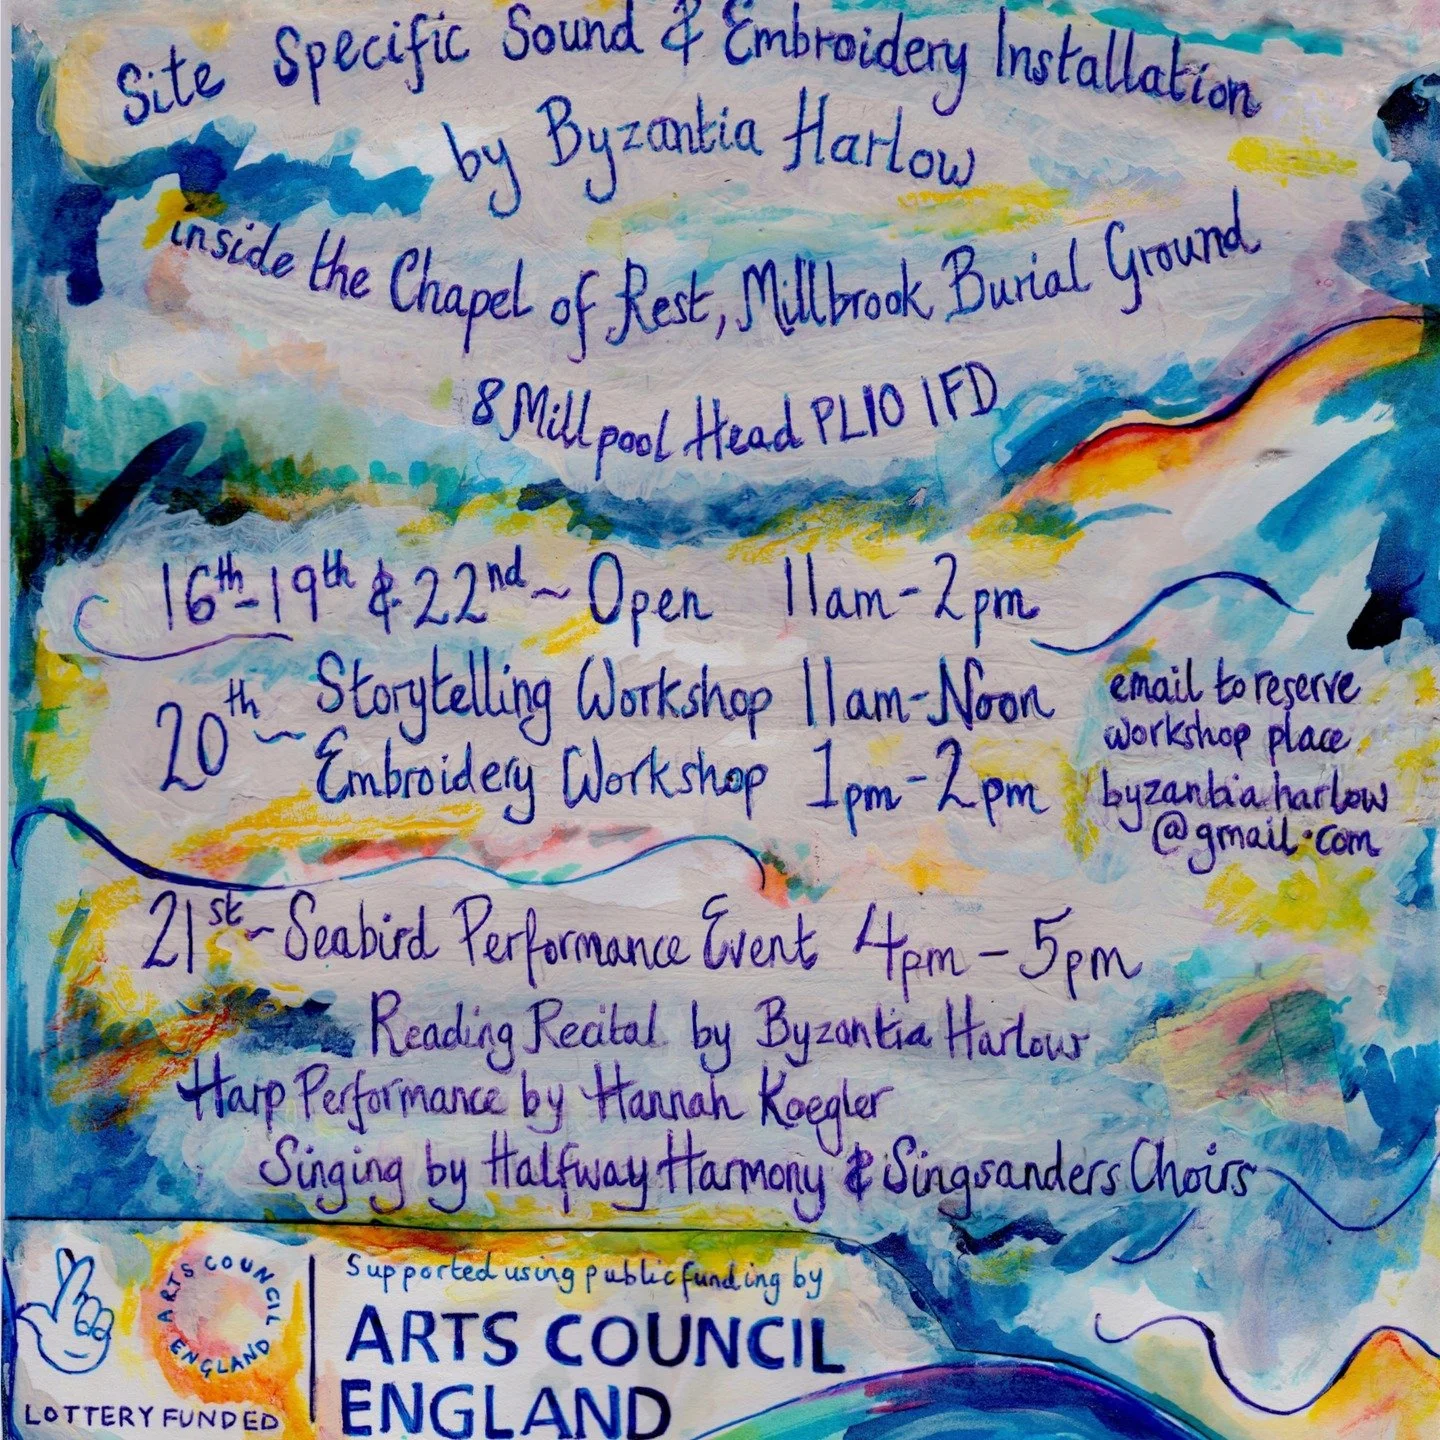 Site Specific Sound & Embroidery Installation
by Byzantia Harlow
inside the Chapel of Rest, Millbrook Burial Ground
8 Millpool Head PL10 1FD
16th-19th & 22nd ~ Open 11am-2pm
20th ~ Storytelling Workshop 11am-Noon
Embroidery Workshop 1pm-2pm
email to reserve
workshop place
byzantiaharlow
@gmail.com
21st ~ Seabird Performance Event 4pm - 5pm
Reading Recital by Byzantia Harlow
Harp Performance by Hannah Koegler
Singing by Halfway Harmony & Singsanders Choirs
ARTS COUNCIL ENGLAND
LOTTERY FUNDED
Supported using public funding by
ARTS COUNCIL
ENGLAND